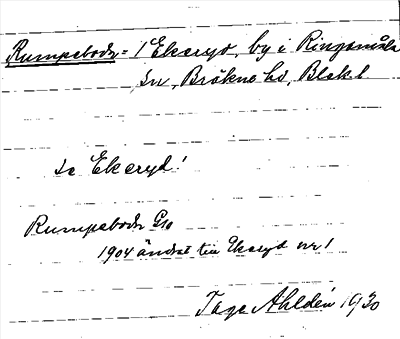 Rumpeboda = 1 Ekeryd, by i Ringamåla
sn, Bräkne hd, Blek. l.
se Ekeryd!
Rumpeboda Gto
1904 ändrat till Ekeryd nr 1
Tage Ahldén 1930